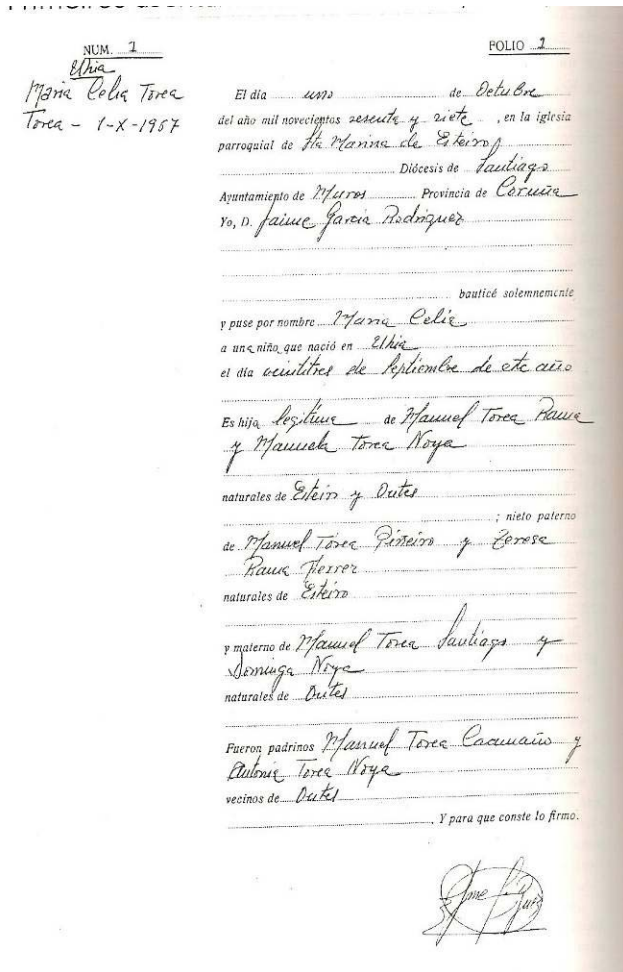 NUM. 1
FOLIO 1
Uhia
Maria Celia Torea
Torea - 1-X-1967
El día uno de Octubre
del año mil novecientos sesenta y siete, en la iglesia
parroquial de Sta Marina de Esteiro
Diócesis de Santiago
Ayuntamiento de Muros Provincia de Coruña
Yo, D. Jaime Garcia Rodriguez
bauticé solemnemente
y puse por nombre Maria Celia
a una niña que nació en Uhia
el día veintitres de Septiembre de este año
Es hija legitima de Manuel Torea Rama
y Manuela Torea Noya
naturales de Esteiro y Outes
; nieto paterno
de Manuel Torea Piñeiro y Teresa
Rama Ferrer
naturales de Esteiro
y materno de Manuel Torea Santiago y
Dominga Noya
naturales de Outes
Fueron padrinos Manuel Torea Caamaño y
Antonia Torea Noya
vecinos de Outes
. Y para que conste lo firmo.